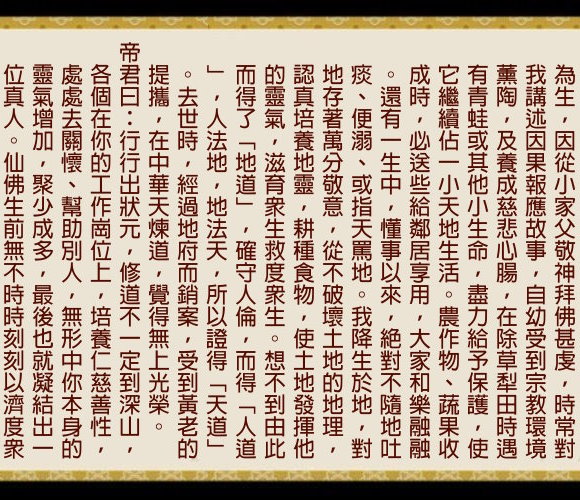 為生，因從小家父敬神拜佛甚虔，時常對
我講述因果報應故事，自幼受到宗教環境
薰陶，及養成慈悲心腸，在除草犁田時遇
有青蛙或其他小生命，盡力給予保護，使
它繼續佔一小天地生活。農作物、蔬果收
成時，必送些給鄰居享用，大家和樂融融
。還有一生中，懂事以來，絕對不隨地吐
痰、便溺、或指天罵地。我降生於地，對
地存著萬分敬意，從不破壞土地的地理，
認真培養地靈，耕種食物，使土地發揮他
的靈氣，滋育眾生救度眾生。想不到由此
而得了「地道」，確守人倫，而得「人道
」，人法地，地法天，所以證得「天道」
。去世時，經過地府而銷案，受到黃老的
提攜，在中華天煉道，覺得無上光榮。
帝君曰：行行出狀元，修道不一定到深山，
各個在你的工作崗位上，培養仁慈善性，
處處去關懷、幫助別人，無形中你本身的
靈氣增加，聚少成多，最後也就凝結出一
位真人。仙佛生前無不時時刻刻以濟度眾